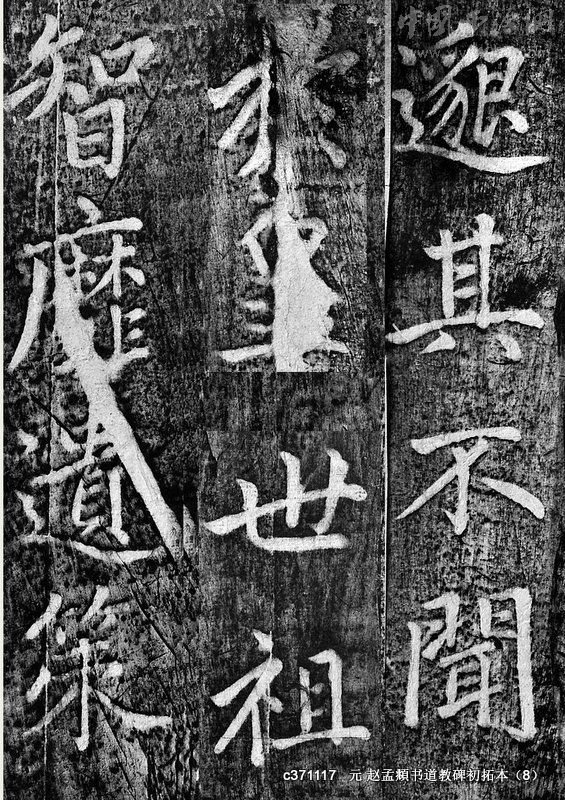 中國书法網
邈其不聞
於皇世祖
智靡遺策
c371117 元 赵孟頫书道教碑初拓本（8）